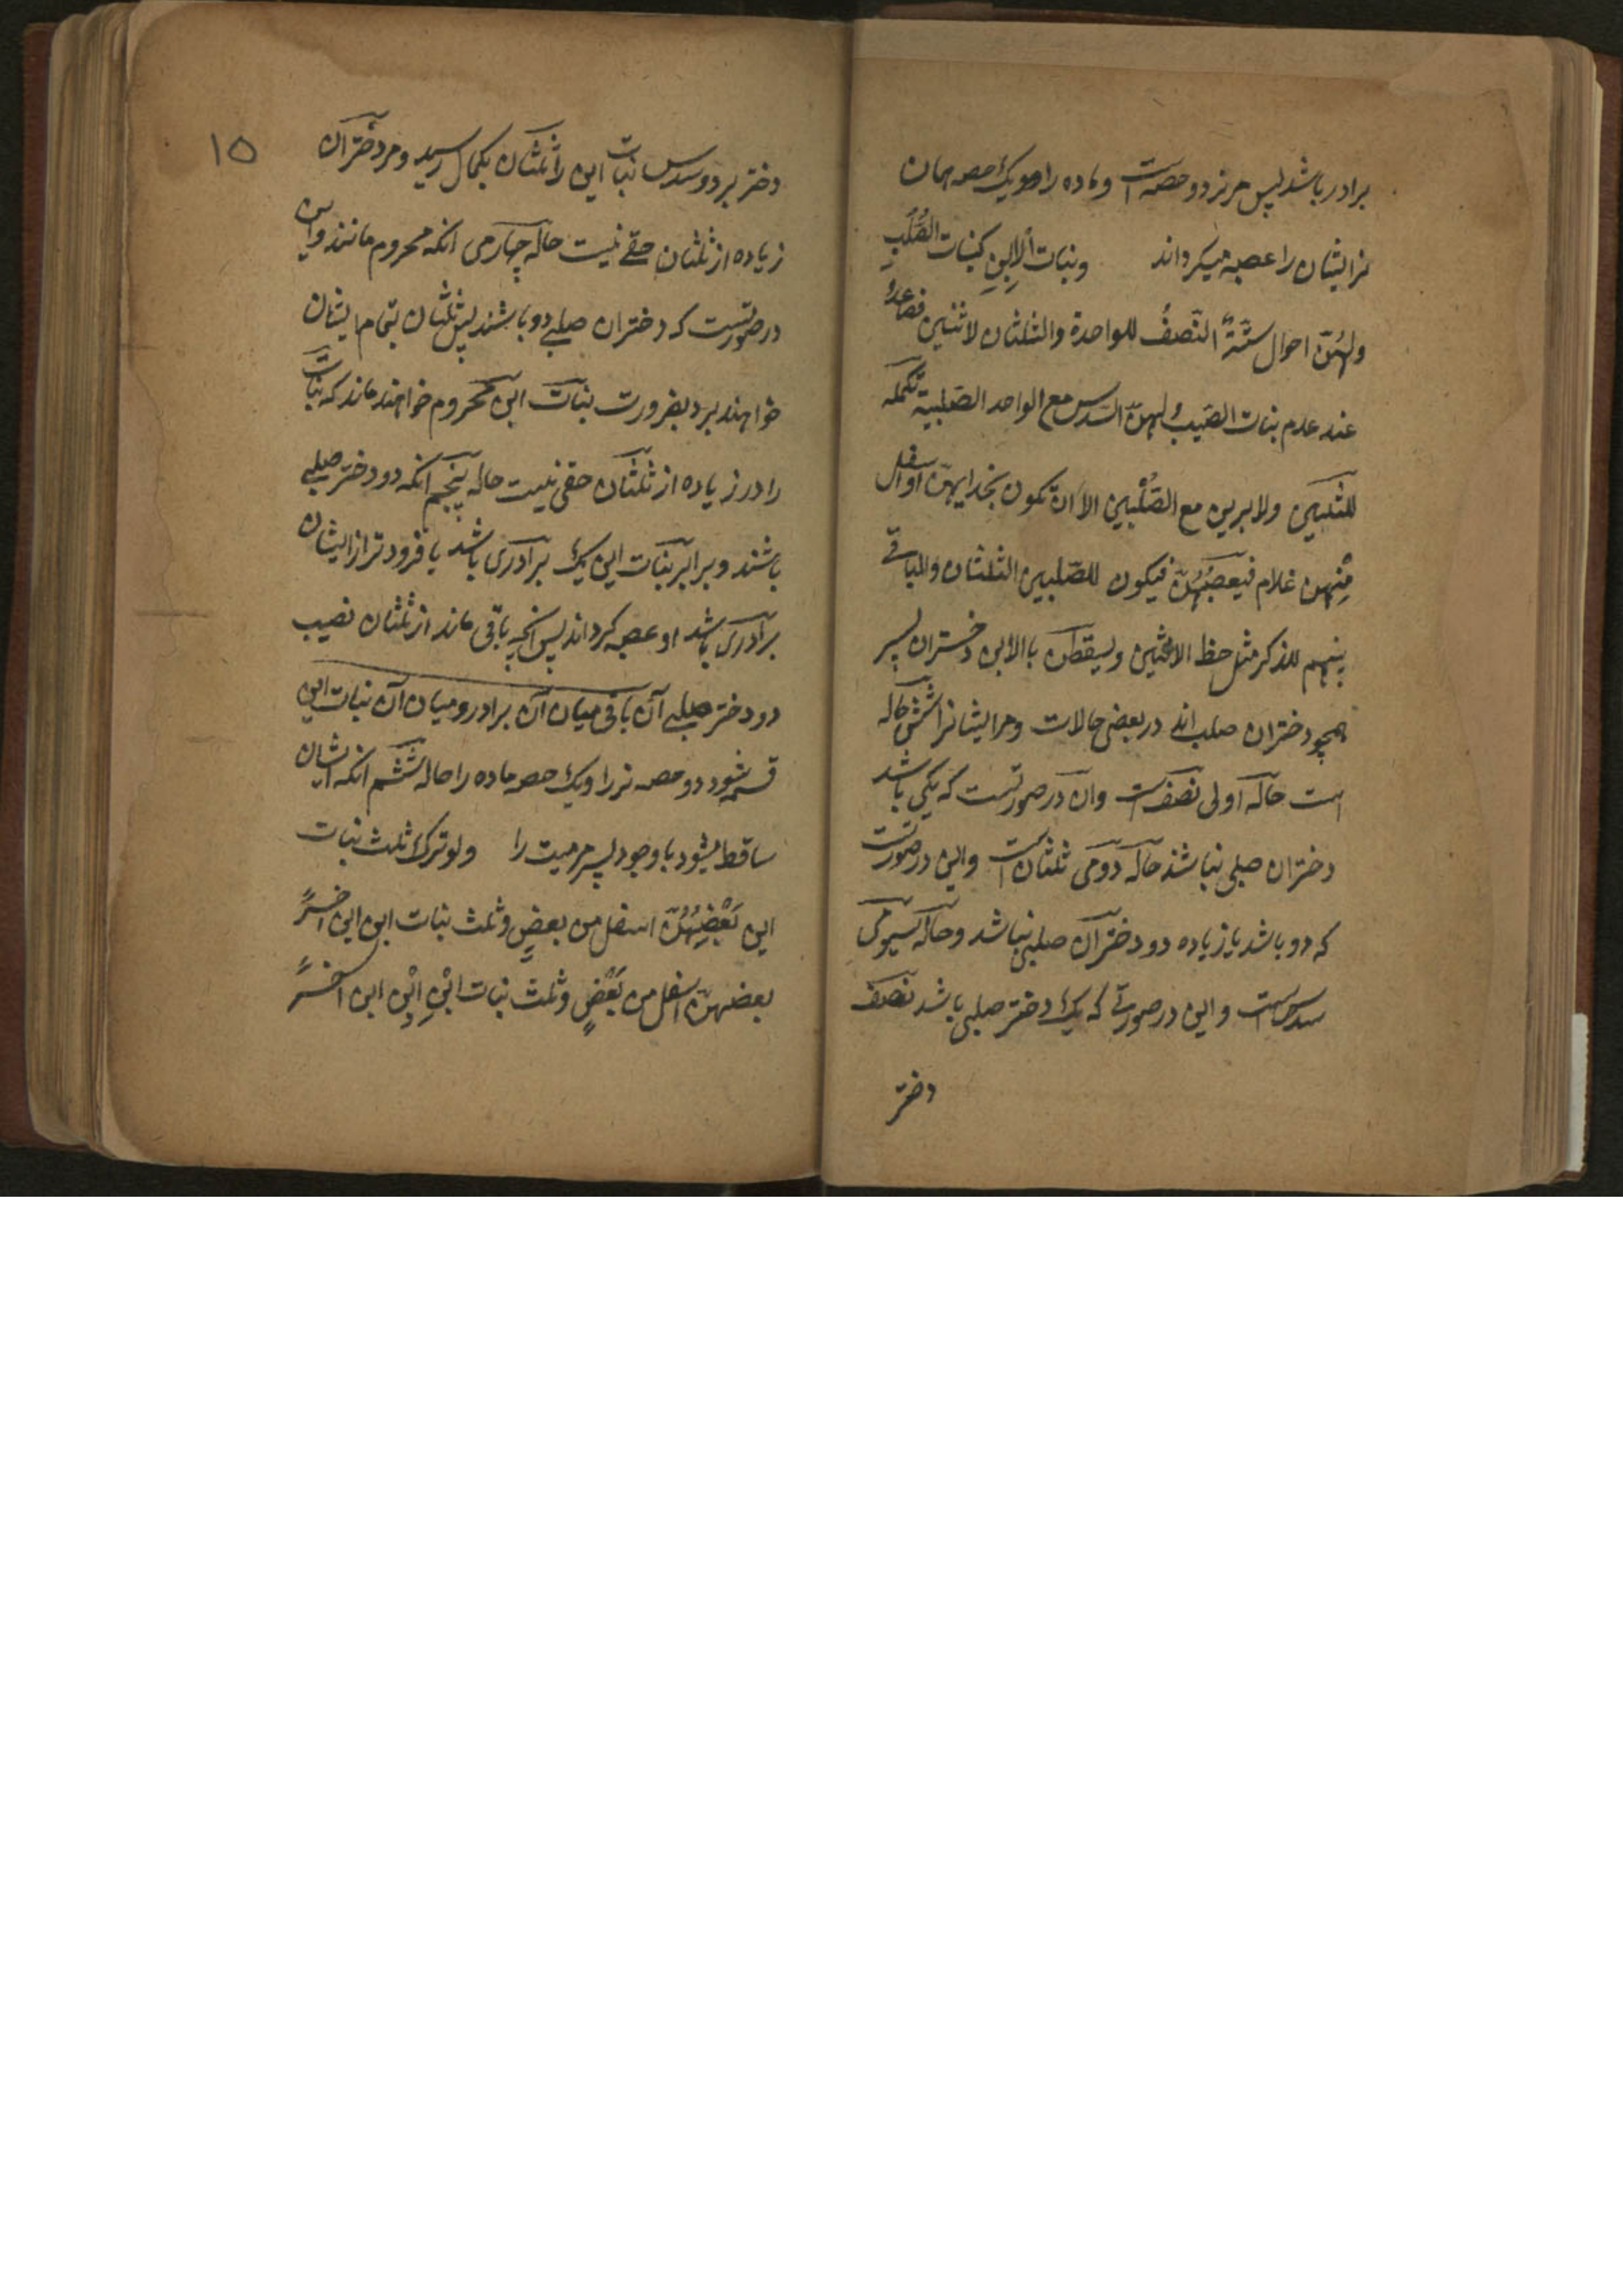 برادر باشد پس هر نر دو حصه است و ماده را هر یک حصه همان
نر ایشان را عصبه میگرداند وبنات الابن کبنات الصُّلبِ
ولهُنّ احوال ستّةٌ النّصفُ للواحدة والثلثان لاثنین فصاعدةً
عند عدم بنات الصّلب ولهنّ السّدس مع الواحد الصّلبیة تکملة
للثلثین ولا یرین مع الصّلبین الا ان تکون بحذایهنّ او اسفل
مِنْهن غلام فیعصّبُهُنّ فیکون للصّلبین الثلثان والباقی
بینهم للذکر مثل حظ الانثیین ویسقطن باالابن دختران پسر
همچو دختران صلب اند در بعضی حالات و مر ایشانرا شش حاله
است حاله اولی نصف است وان در صورتست که یکی باشد
دختران صلبی نباشند حاله دومی ثلثان است واین در صورتست
که دو باشد یا زیاده دو دختران صلبی نباشد وحاله سیومی
سدس است واین در صورتی که یک دختر صلبی باشد نصف
دختر
١٥
دختر برد و سدس بنات ابن را ثلثان بکمال رسید و مر دختران
زیاده از ثلثان حقی نیست حاله چهارمی انکه محروم مانند واین
در صورتست که دختران صلبی دو باشند پس ثلثان بتمام ایشان
خواهند برد بضرورت بنات ابن محروم خواهند ماند که بنات
را در زیاده از ثلثان حقی نیست حاله پنجم انکه دو دختر صلبی
باشند و برابر بنات ابن یک برادری باشد یا فرودتر از ایشان
برادری باشد او عصبه گرداند پس انچه باقی ماند از ثلثان نصیب
دو دختر صلبی آن باقی میان آن برادر و میان آن بنات ابن
قسمه شود دو حصه نر را ویک حصه ماده را حاله ششم انکه ایشان
ساقط میشود با وجود پسر میت را ولو ترک ثلث بنات
ابن بَعْضُهُنّ اسفل من بعضٍ وثلث بنات ابن ابن اخرً
بعضهنّ اسفل من بَعْضٍ وثلث بنات ابْنِ ابْنِ ابن اخرً